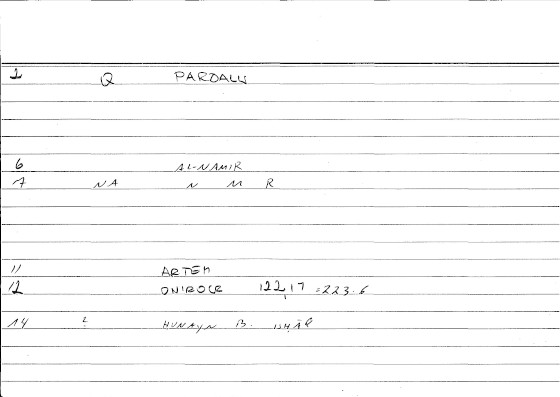 1 Q PARDALIS
6 AL-NAMIR
7 NA N M R
11 ARTEM
12 ONIROCR 122,17 = 223.6
14 2 HUNAYN B. ISḤĀQ